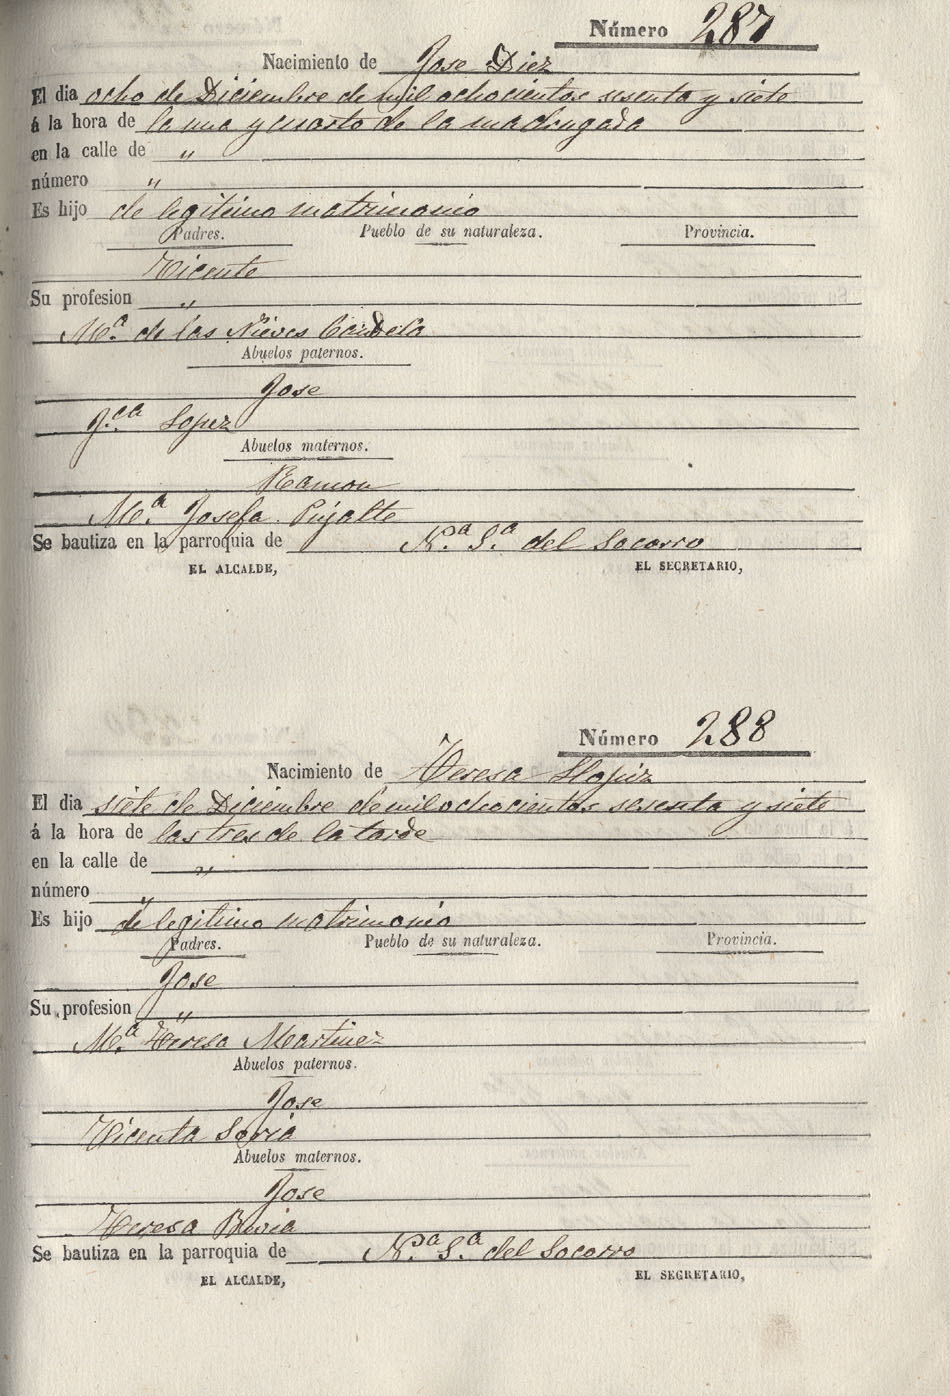 Número 287
Nacimiento de Jose Diez
El dia ocho de Diciembre de mil ochocientos sesenta y siete
á la hora de la una y cuarto de la madrugada
en la calle de "
número "
Es hijo de legitimo matrimonio
Padres. Pueblo de su naturaleza. Provincia.
Vicente
Su profesion "
Mª. de las Nieves Candela
Abuelos paternos.
Jose
J.ca Lopez
Abuelos maternos.
Ramon
M.a Josefa Pujalte
Se bautiza en la parroquia de N.a S.a del Socorro
EL ALCALDE, EL SECRETARIO,
Número 288
Nacimiento de Teresa Llopiz
El dia siete de Diciembre de mil ochocientos sesenta y siete
á la hora de las tres de la tarde
en la calle de "
número "
Es hijo de legitimo matrimonio
Padres. Pueblo de su naturaleza. Provincia.
Jose
Su profesion "
M.a Teresa Martinez
Abuelos paternos.
Jose
Vicenta Soria
Abuelos maternos.
Jose
Teresa
Se bautiza en la parroquia de N.a S.a del Socorro
EL ALCALDE, EL SECRETARIO,